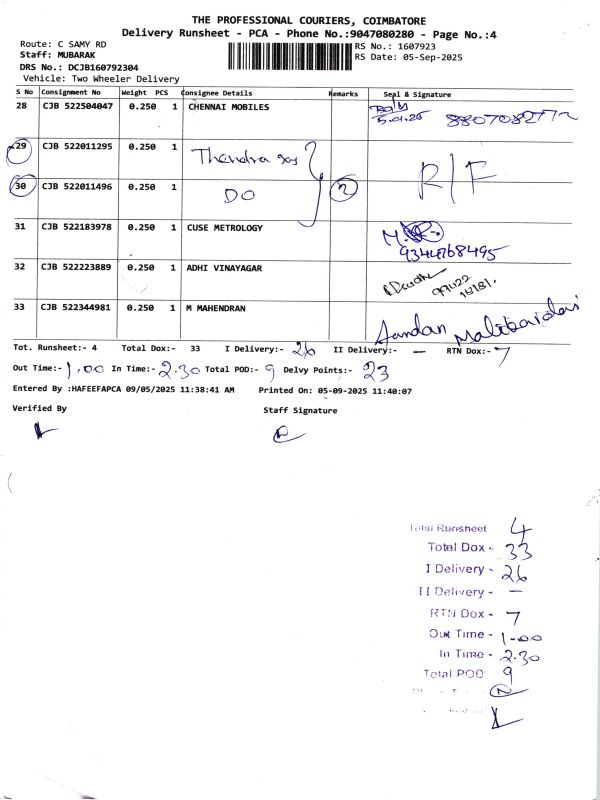 THE PROFESSIONAL COURIERS, COIMBATORE
Delivery Runsheet - PCA - Phone No.:9047080280 - Page No.:4
Route: C SAMY RD
RS No.: 1607923
Staff: MUBARAK
RS Date: 05-Sep-2025
DRS No.: DCJB160792304
Vehicle: Two Wheeler Delivery
S No Consignment No Weight PCS Consignee Details Remarks Seal & Signature
28 CJB 522504047 0.250 1 CHENNAI MOBILES 8807082772
29 CJB 522011295 0.250 1
30 CJB 522011496 0.250 1 DO 2 R/F
31 CJB 522183978 0.250 1 CUSE METROLOGY 9344768495
32 CJB 522223889 0.250 1 ADHI VINAYAGAR
33 CJB 522344981 0.250 1 M MAHENDRAN
Tot. Runsheet:- 4 Total Dox:- 33 I Delivery:- 26 II Delivery:- — RTN Dox:- 7
Out Time:- 1.00 In Time:- 2.30 Total POD:- 9 Delvy Points:- 23
Entered By :HAFEEFAPCA 09/05/2025 11:38:41 AM Printed On: 05-09-2025 11:40:07
Verified By Staff Signature
Total Runsheet 4
Total Dox - 33
I Delivery - 26
II Delivery - —
RTN Dox - 7
Out Time - 1.00
In Time - 2.30
Total POD 9